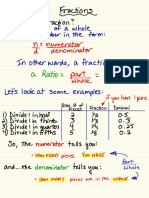 Fractions
fraction?
of a whole
in the form:
n = numerator
d denominator
In other words, a fraction
a Ratio = part
whole
Let's look at some examples:
if you have 1 piece
Total # of Pieces Fraction Decimal
1) Divide 1 in half 2 1/2 0.5
2) Divide 1 in thirds 3 1/3 0.3
3) Divide 1 in quarters 4 1/4 0.25
4) Divide 1 in fifths 5 1/5 0.2
So, the numerator tells you:
how many pieces YOU HAVE!
Part
Whole
and....the denominator tells you:
how many pieces are in the whole!